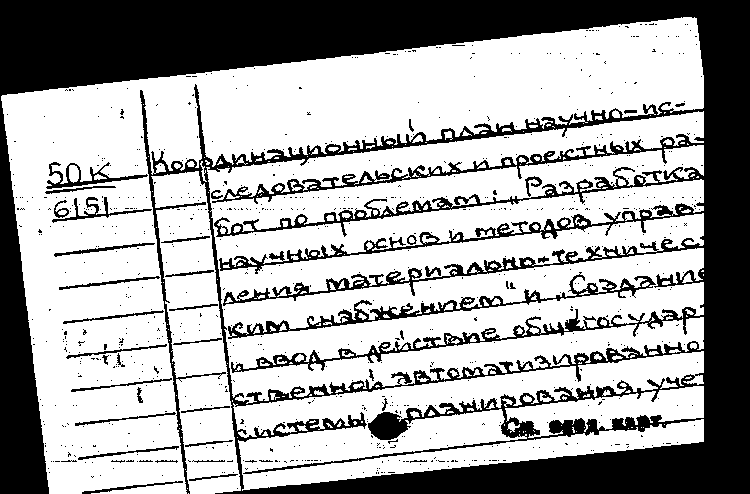 50К
6151
Координационный план научно-ис-
следовательских и проектных ра-
бот по проблемам: „Разработка
научных основ и методов управ-
ления материально-техничес-
ким снабжением“ и „Создание
и ввод в действие общегосудар-
ственной автоматизированно
системы планирования, учет
См. след. карт.